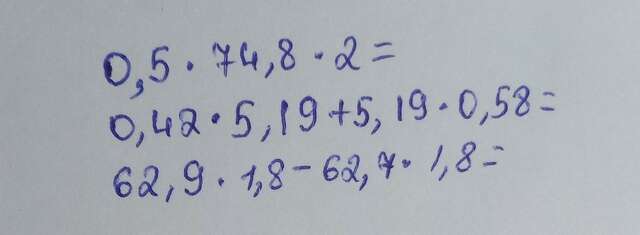 0,5 · 74,8 · 2 =
0,42 · 5,19 + 5,19 · 0,58 =
62,9 · 1,8 - 62,7 · 1,8 =